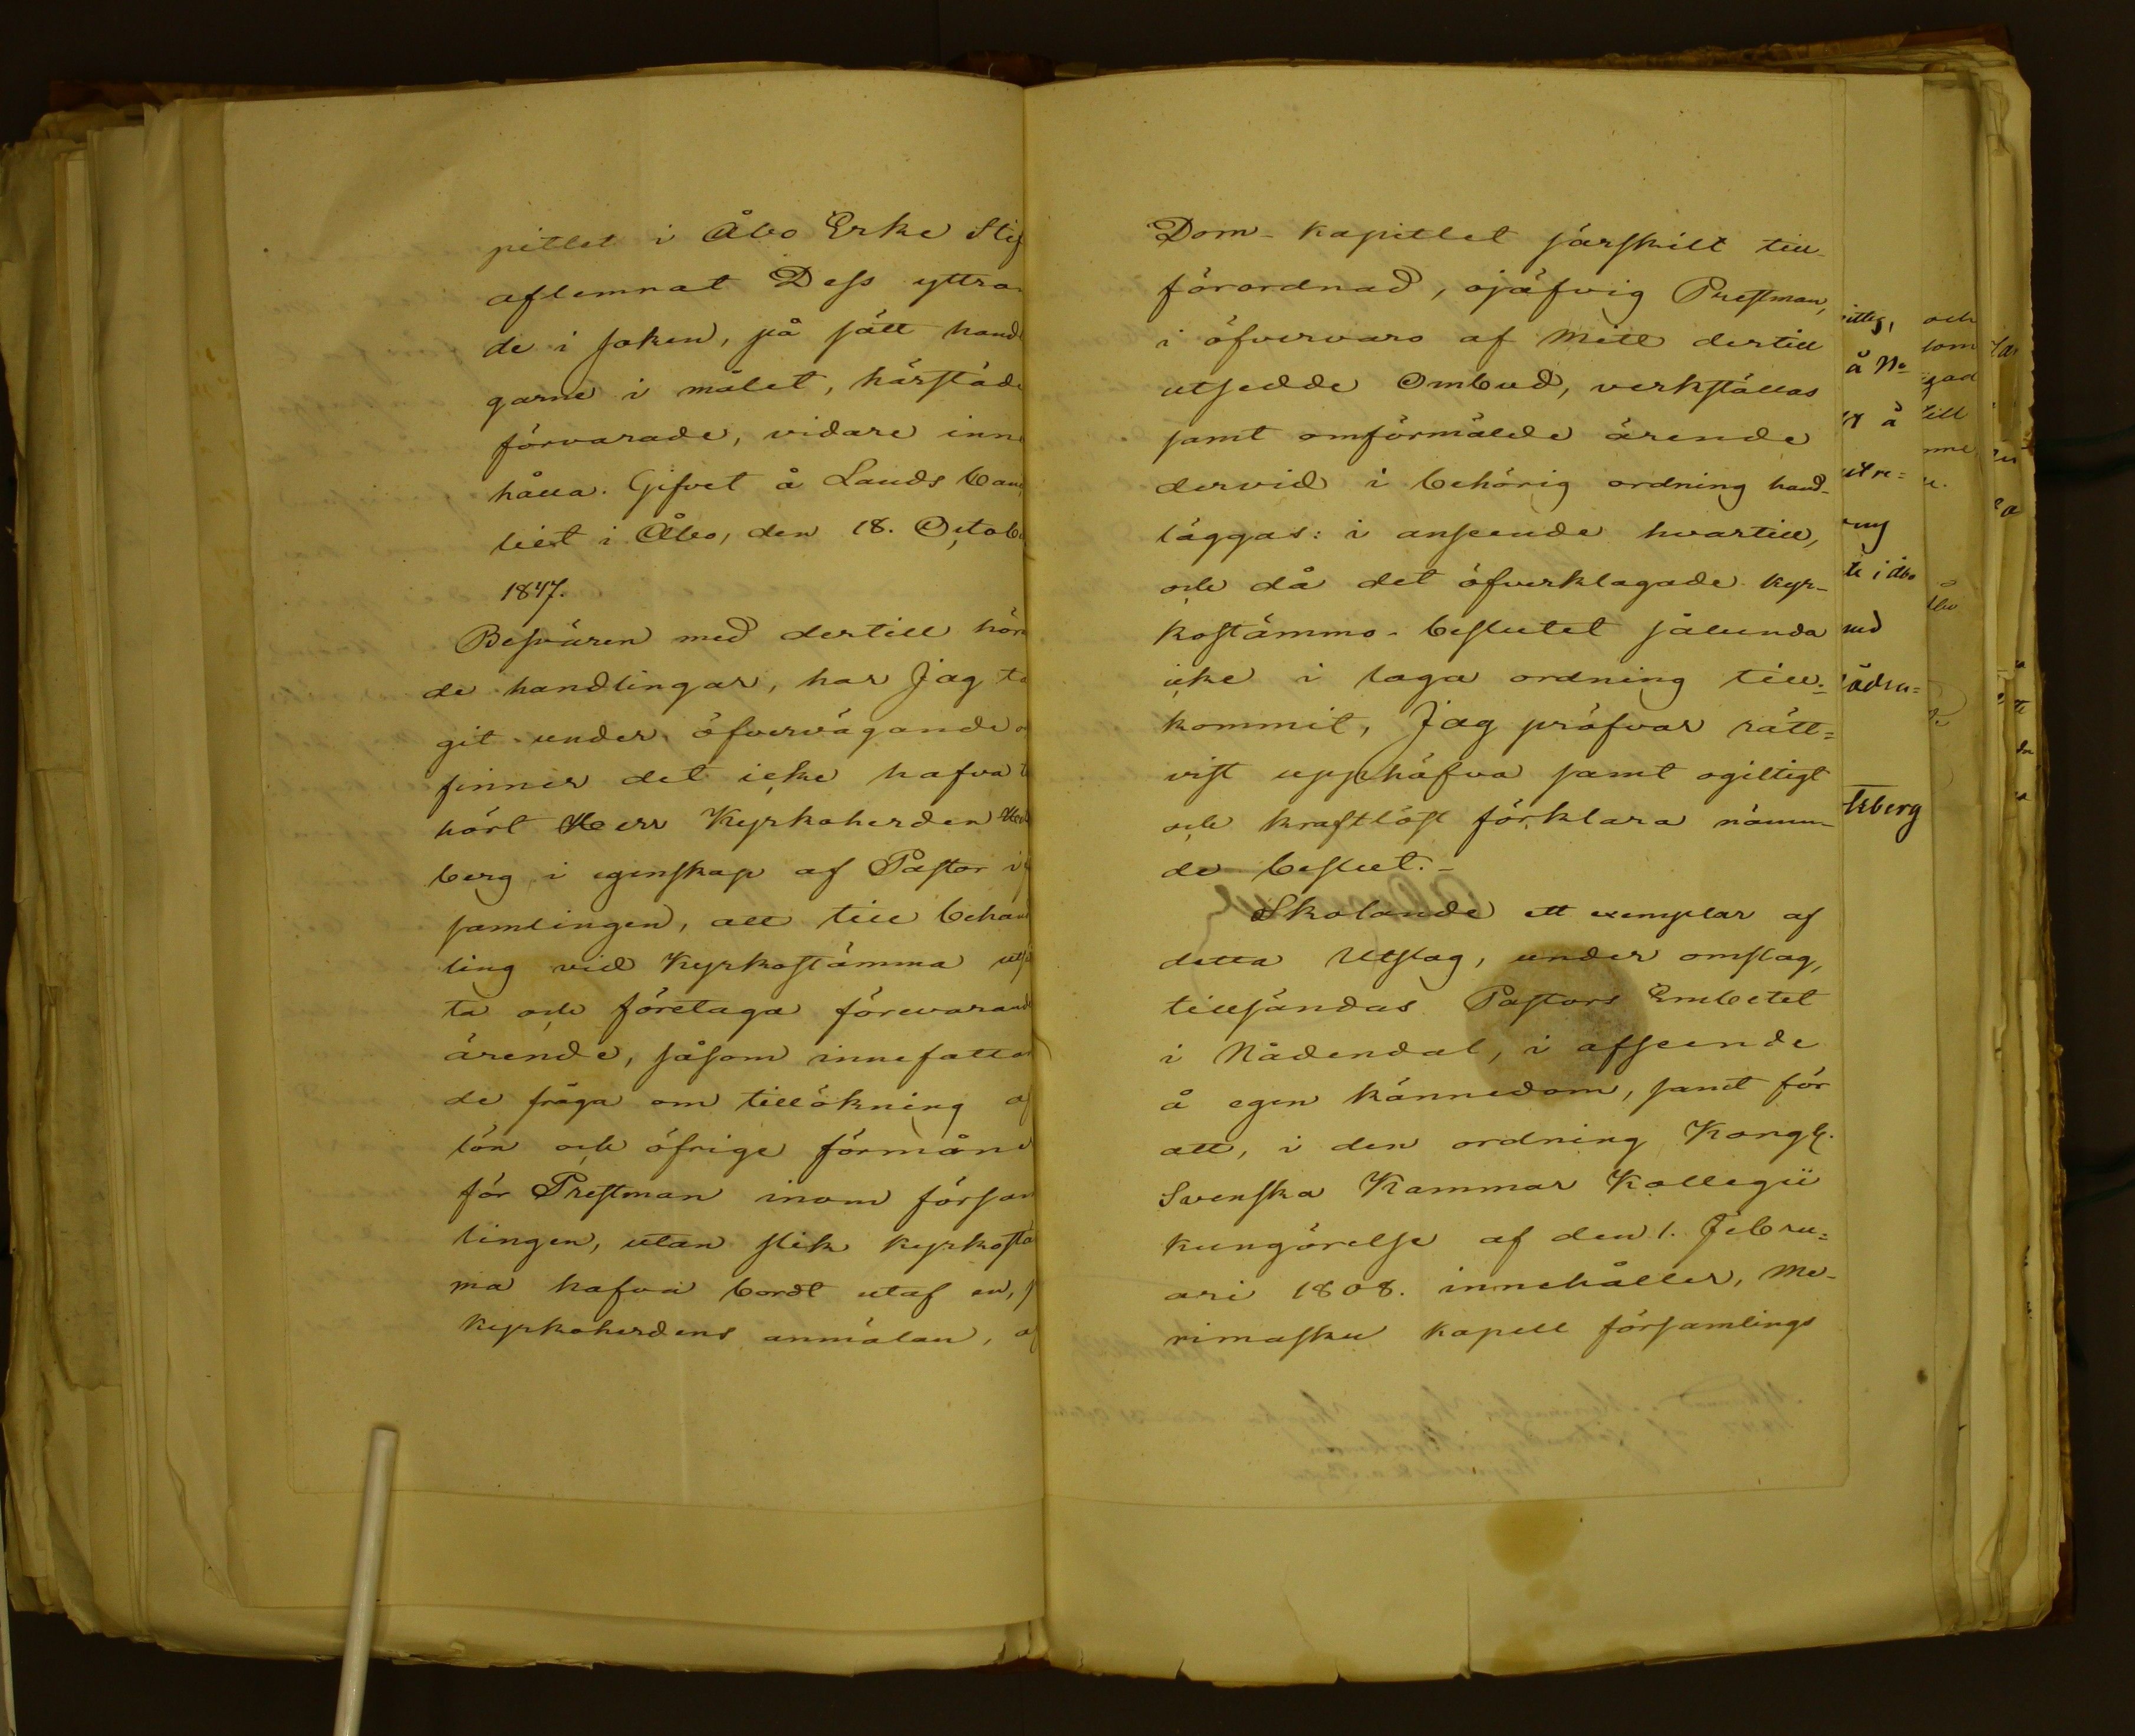 pitlet i Åbo Erke Stif
aflemnat Dess yttran
de i saken, på sätt handl
garne i målet, härstäde
förvarade, vidare inne
hålla. Gifvet å Lands Canc
liet i Åbo, den 18. Octobe
1847.
Besvären med dertill hör
de handlingar, har Jag ta
git under öfvervägande o
finner det icke hafva t
hört Herr Kyrkoherden
berg i egenskap af Pastor i
samlingen, att till behan
ling vid Kyrkostämma utsä
ta och företaga förevarand
ärende, såsom innefattan
de fråga om tillökning af
lön och öfrige förmåne
för Prestman inom försam
lingen, utan slik kyrkostä
ma hafva bordt utaf en, p
Kyrkoherdens anmälan, af
Dom-kapitlet särskilt till
förordnad, ojäfvig Prestman,
i öfvervaro af mitt dertill
utsedde Ombud, verkställas
samt omförmälde ärende
dervid i behörig ordning hand-
läggas: i anseende hvartill,
och då det öfverklagade kyr-
kostämmo-beslutet sålunda
icke i laga ordning till-
kommit, Jag pröfvar rätt=
vist upphäfva samt ogiltigt
och kraftlöst förklara nämn-
de beslut.-
Skolande ett exemplar af
detta Utslag, under omslag,
tillsändas Pastors Embetet
i Nådendal, i afseende
å egen kännedom, samt för
att, i den ordning Kongl.
Svenska Kammar Kollegii
kungörelse af den 1. Febru=
ari 1808. innehåller, Me-
rimasku kapell församlings
å No
och
som
till
berg